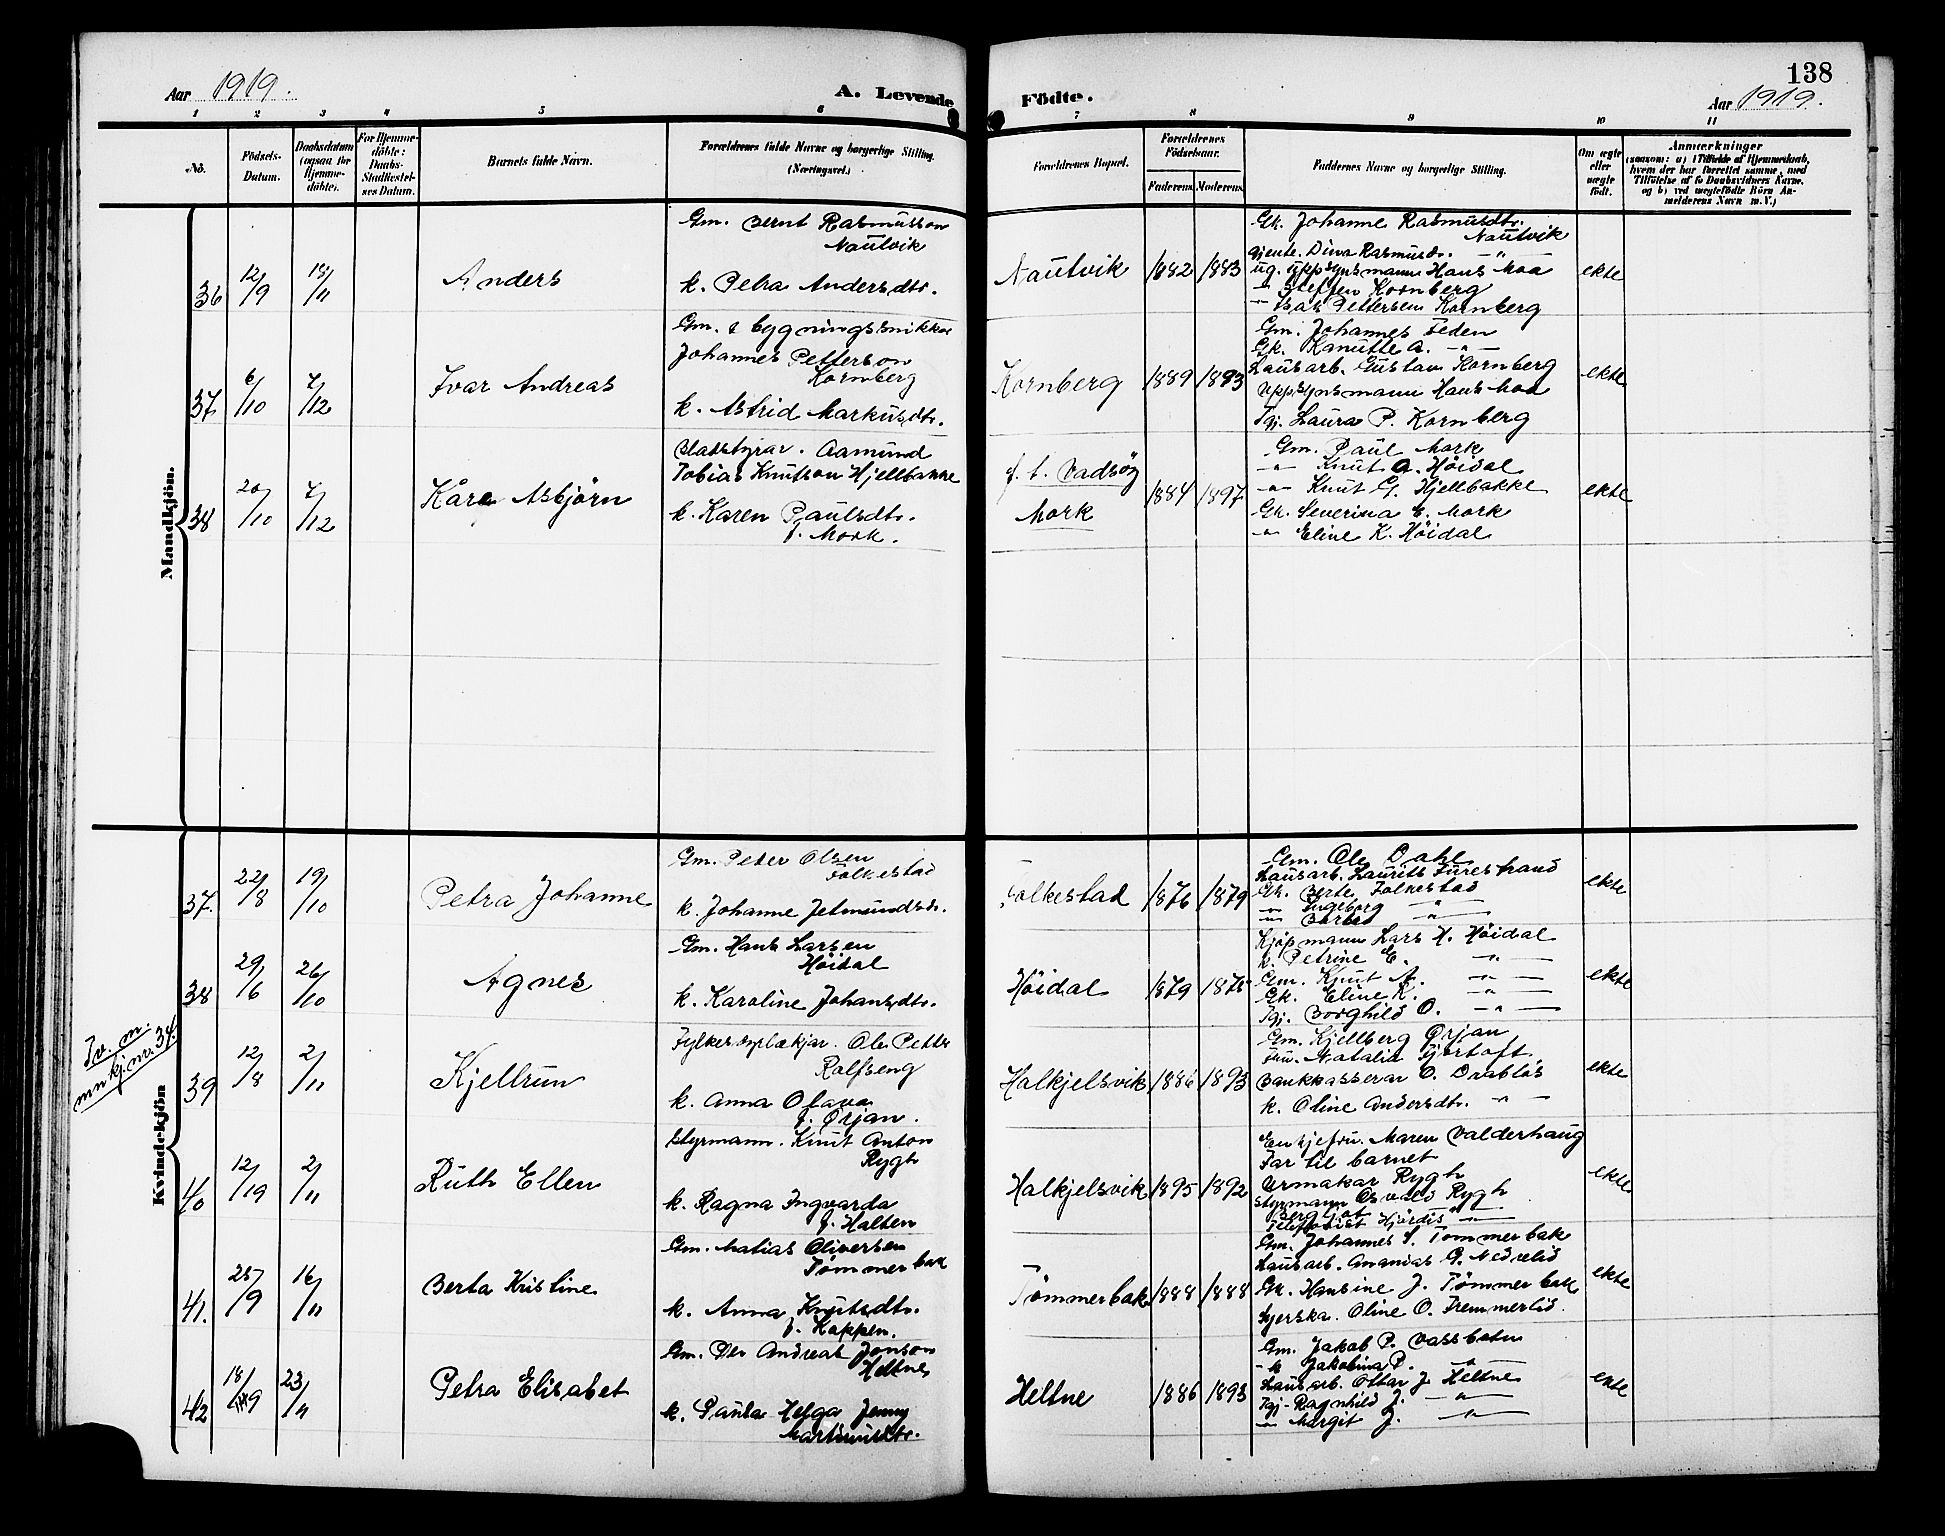 138
Aar 1919.
A. Levende Födte.
Aar 1919.
1 2 3 4 5 6 7 8 9 10 11
No.
Födsels-
Datum.
Daabsdatum
(ogsaa for
Hjemme-
döbte).
For Hjemme-
döbte:
Daabs-
Stadfæstel-
ses Datum.
Barnets fulde Navn.
Forældrenes fulde Navne og borgerlige Stilling.
(Næringsvei.)
Forældrenes Bopæl.
Forældrenes
Födselsaar.
Faderens. Moderens.
Faddernes Navne og borgerlige Stilling.
Om ægte
eller
uægte
födt.
Anmærkninger
(saasom: a) i Tilfælde af Hjemmedaab,
hvem der har forrettet samme, med
Tilföielse af to Daabsvidners Navne,
og b) ved uægtefödte Börn An-
melderens Navn m. V.)
Mandkjön.
36 12/9 18/11 Anders
Gm. Bernt Rasmusson
Nautvik
k. Petra Andersdtr.
Nautvik 1882 1883
Gk. Johanne Rasmusdtr.
Nautvik
Gjente. Dina Rasmusd. -"-
ug. Uppsynsmann Hans Moa
-"- Steffen Kornberg
-"- Isak Pettersen Kornberg
ekte
37 6/10 7/12 Ivar Andreas
Gm. & bygningssnikkar
Johannes Petterson
Kornberg
k. Astrid Markusdtr.
Kornberg 1889 1893
Gm. Johannes Feden
Gk. Kanutte A. -"-
Lausarb. Gustav Kornberg
Uppsynsmann Hans Moa
Tgj. Laura P. Kornberg
ekte
38 20/10 7/12 Kåre Asbjörn
Bladstyrar. Aamund
Tobias Knutson Hjellbakke
k. Karen Paulsdtr.
f. Mork.
f. t. Vadsöy
Mork
1884 1897
Gm. Paul Mork
-"- Knut A. Höidal
-"- Knut G. Hjellbakke
Gk. Severina E. Mork
-"- Eline K. Höidal
ekte
Kvindekjön
37. 22/8 19/10 Petra Johanne
Gm. Peter Olsen
Folkestad
k. Johanne Jetmundsd.
Folkestad 1876 1879
Gm. Ole Dahl
Lausarb. Laurits Furestrand
Gk. Berte Folkestad
-"- Ingeborg -"-
-"- Barbro -"-
ekte
38 29/6 26/10 Agnes
Gm. Hans Larsen
Höidal
k. Karoline Johansdtr.
Höidal 1879 1878
Kjöpmann Lars H. Höidal
k. Petrine E. -"-
Gm. Knut A. -"-
Gk. Eline K. -"-
Tgj. Borghild O. -"-
ekte
Tv. m.
mnkj. nr. 34.
39 12/8 2/11 Kjellrun
Ole Petter
Ralfseng
k. Anna Olava
f. Örjan.
Halkjelsvik 1886 1893
Gm. Kjellberg Örjan
Fru. Natalia Fjörtoft
Bankkasserar O. Drabløs
k. Oline Andersdtr. -"-
ekte
40 12/19 2/11 Ruth Ellen
Styrmann. Knut Anton
Rygh
k. Ragna Ingvarda
f. Halten
Halkjelsvik 1895 1892
Enkjefru. Maren Valderhaug
Far til barnet
Urmakar Rygh
Styrmann Osvald Rygh
Bergljot -"-
Telefonist Hjördis -"-
ekte
41. 25/9 16/11 Berta Kristine
Gm. Matias Oliversen
Tömmerbak
k. Anna Knutsdtr.
f. Koppen.
Tömmerbak 1888 1888
Gm. Johannes S. Tömmerbak
Lausarb. Ananias G. Nedrelid
Gk. Hansine J. Tömmerbak
Syerska. Oline O. Fremmerlid.
ekte
42 18/9 23/11 Petra Elisabet
Gm. Per Andreas Jonson
Heltne
k. Paula Helga Jenny
Martinusdtr.
Heltne 1886 1893
Gm. Jakob P. Vassbotn
-k Jakobina P. -"-
Lausarb. Ottar J. Heltne
Tgj. Ragnhild J. -"-
-"- Margit J. -"-
ekte